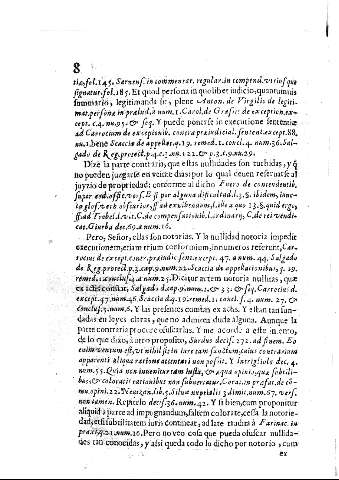 8
tis, fol. 145. Sarnens. in commentar. regular. in comprend. vtriusque
signatur. fol. 185. Et quod persona in quolibet iudicio, quantumuis
summario, legitimanda sit, plene Anton. de Virgilis de legiti-
mat. persona in præludi. 2 num. 1. Carol. de Grassis de exception. ex-
cept. 4. num. 95. & seq. Y puede ponerse in executione sententiæ
ad Carrocium de exceptionib. contra præiudicial. sentent. except. 88,
nu. 1. bene Scaccia de appellat. q. 19. remed. 1. concl. 4. num. 36. Sal-
gado de Reg. protect. p. 4. c. 3. nu. 122. & p. 3. c. 9. nu. 29.
Dize la parte contraria, que estas nullidades son turbidas, y q̃
no pueden juzgarse en veinte dias: por lo qual deuen reseruarse al
juyzio de propriedad: conforme al dicho Fuero de contenderelib.
super ord. offic. vers. E si per alguna dificultad. l. 3. §. ibidem, iunc-
ta gloss. verb. obscurior, ff. ad exibendum, l. ille a quo 13. §. quid ergo,
ff. ad Trebel. l. vlt. C. de compensationib. l. ordinarij, C. de rei vendi-
cat. Giurba dec. 69. à num. 16.
Pero, Señor, ellas son notorias. Y la nullidad notoria impedir
executionem, etiam trium conformium, innumeros referunt, Car-
rocius de except. contr. præiudic. sent. except. 47. à num. 44. Salgado
de Reg. protect. p. 3. cap. 9. num. 22. Scaccia de appellationibus, q. 19.
remed. 1. conclus. 4. à num. 25. Dicitur autem notoria nullitas, quæ
ex actis constat, Salgado d. cap. 9. num. 1. & 33. & seq. Carrocius d.
except. 47. num. 46. Scaccia d. q. 19. remed. 1. concl. 5. 4. num. 27. &
conclus. 5. num. 6. Y las presentes constan ex actis. Y estan tan fun-
dadas en leyes claras, que no admiten duda alguna. Aunque la
parte contraria procure ofuscarlas. Y me acordè à este intento,
de lo que dixo, à otro proposito, Surdus decis. 272. ad finem. Eo
enim ventum est, vt nihil sit in iure tam sanctum, cuius contrarium
apparenti aliqua ratione attentari non possit. Y Intrigliolo dec. 4.
num. 55. Quia non inuenitur tam iusta, & æqua opinio, quæ subtili-
bus, & coloratis rationibus non subuertatur, Corat. in præfat. de cõ-
mu. opini. 22. Neuizan. lib. 5. Silua nuptialis 3. dimit. num. 67. vers.
non tamen. Repitelo decis. 36. num. 42. Y si bien, cum proponitur
aliquid à parte ad impugnandum, saltem colorate, cessa la notorie-
dad, etsi subtilitatem iuris contineat, ad late tradita à Farinac. in
praxi q. 21. num. 16. Pero no veo cosa que pueda ofuscar nullida-
des tan conocidas, y assi queda todo lo dicho por notorio, cum
ex